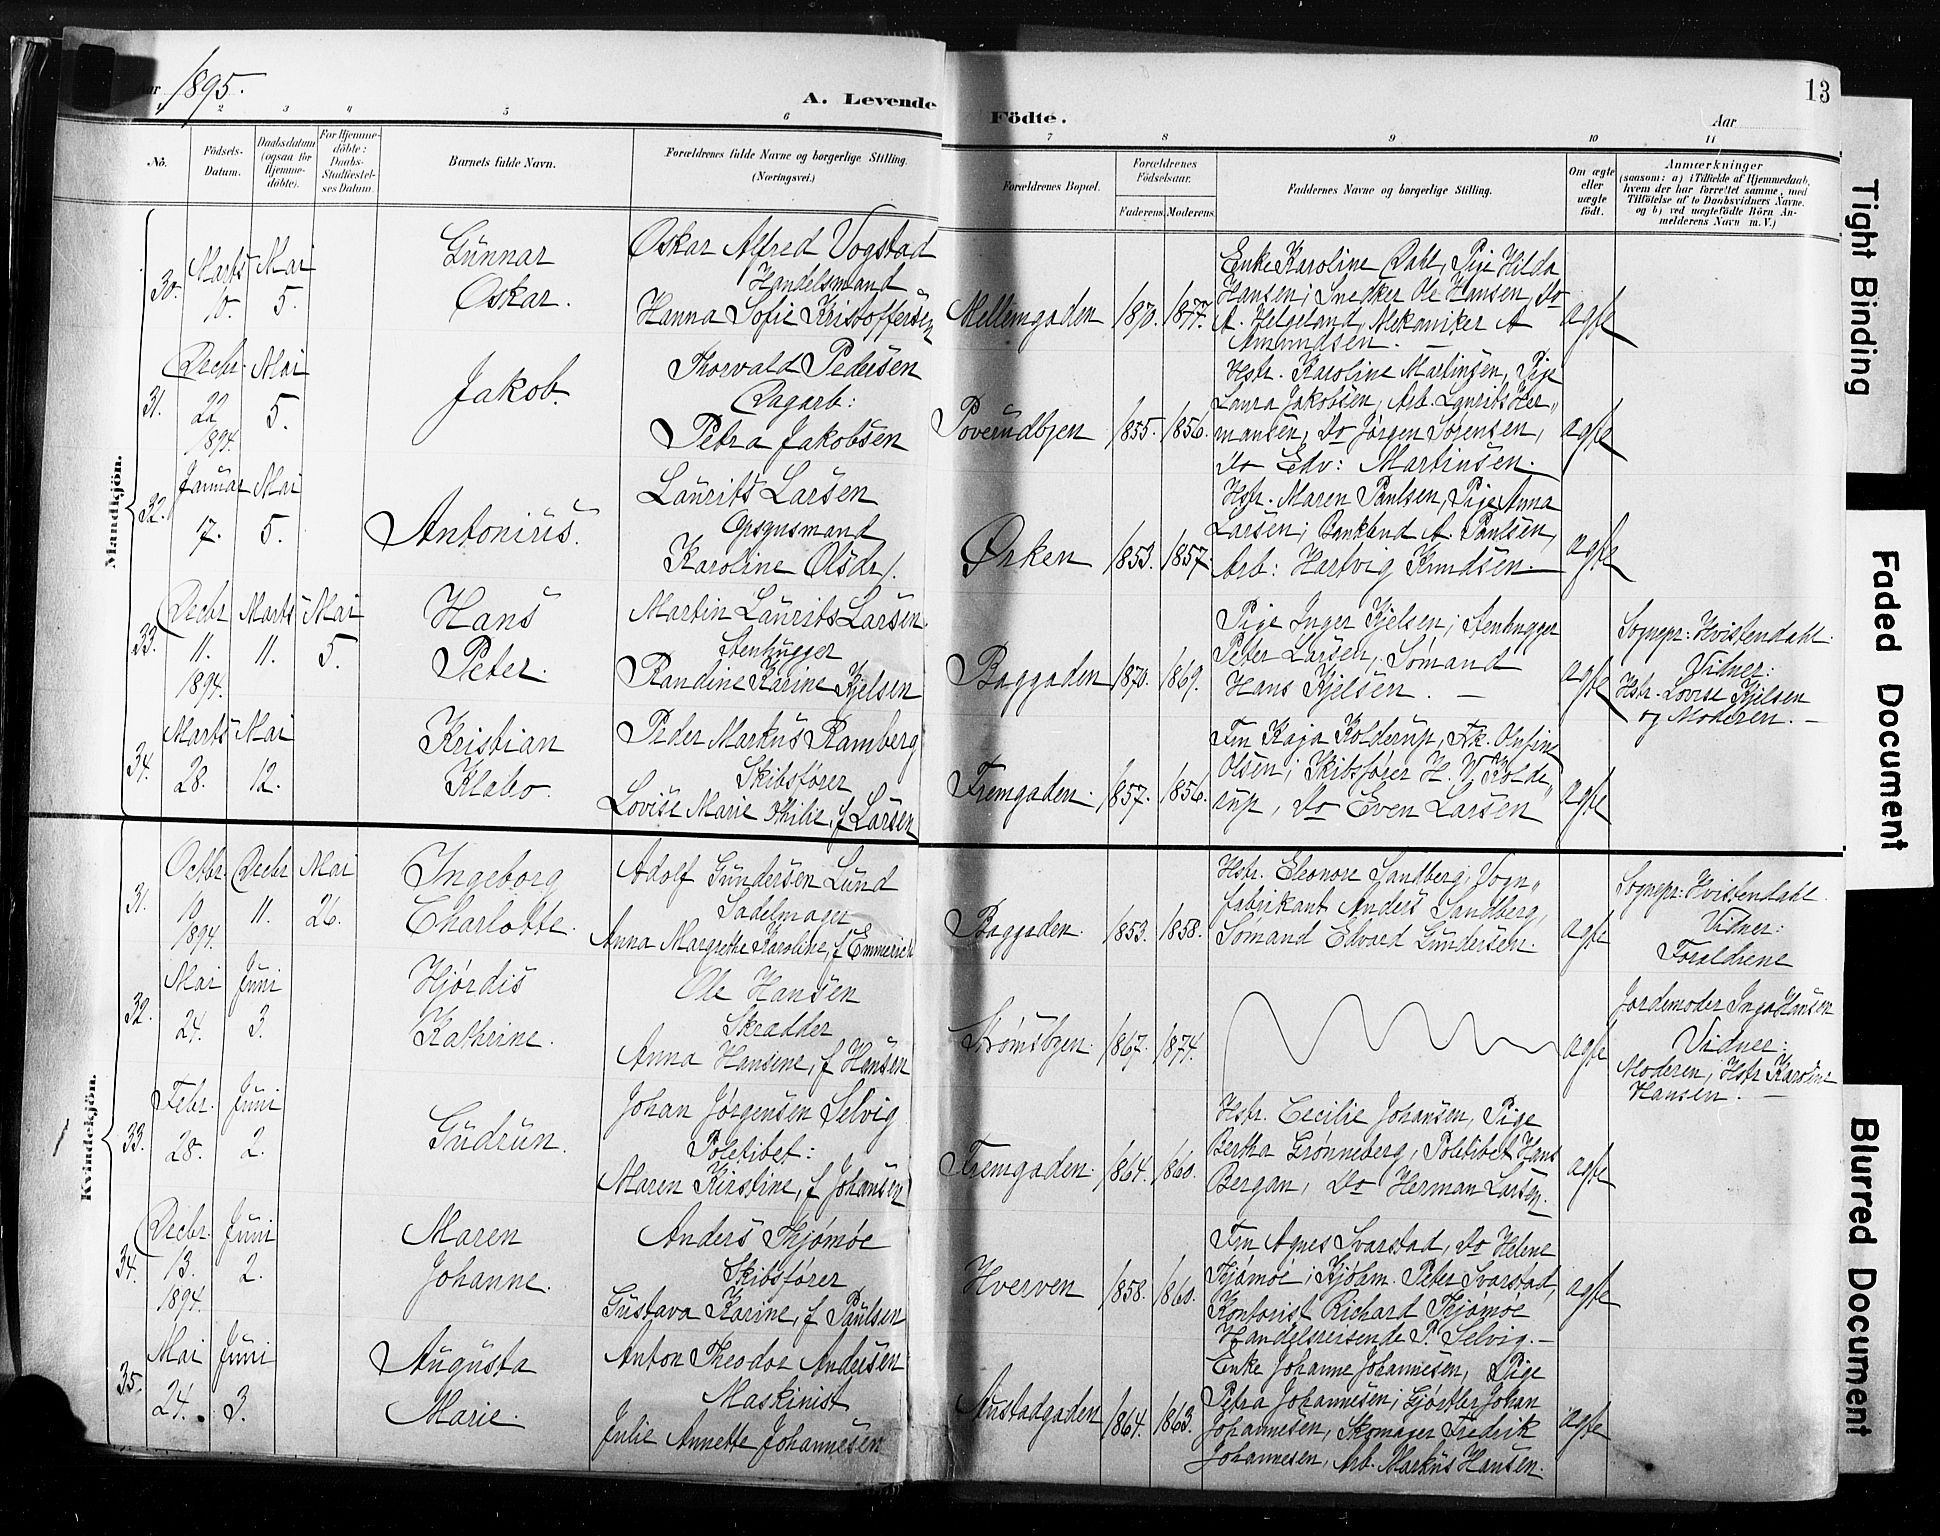 Aar 1895.
A. Levende
Födte.
Aar
13
1 2 3 4 5 6 7 8 9 10 11
No.
Födsels-
Datum.
Daabsdatum
(ogsaa for
Hjemme-
döbte).
For Hjemme-
döbte:
Daabs-
Stadfæstel-
ses Datum.
Barnets fulde Navn.
Forældrenes fulde Navne og borgerlige Stilling.
(Næringsvei.)
Forældrenes Bopæl.
Forældrenes
Födselsaar.
Faderens. Moderens.
Faddernes Navne og borgerlige Stilling.
Om ægte
eller
uægte
födt.
Anmærkninger
(saasom: a) i Tilfælde af Hjemmedaab,
hvem der har forrettet samme, med
Tilföielse af to Daabsvidners Navne.
og b) ved uægtefödte Börn An-
melderens Navn m. V.)
Mandkjön.
30. Marts 10. Mai 5.
Gunnar
Oskar.
Oskar Alfred Vogstad
Handelsmand
Hanna Sofie Kristoffersen
Mellemgaden 1870. 1877.
Enke Karoline Dahl, Pige Hilda
Hansen; Snedker Ole Hansen, Do
A. Helgeland, Mekaniker A
Amundsen. —
ægte
31. Decbr. 22 1894. Mai 5.
Jakob.
Thorvald Pedersen
Dagarb:
Petra Jakobsen
Poverudbyen 1855. 1856.
Hstr. Karoline Martinsen, Pige
Laura Jakobsen, Arb. Laurits Her„
mansen, Do Jørgen Sørensen,
Do Edv: Martinsen.
ægte
32. Januar 17. Mai 5.
Antonius.
Laurits Larsen
Gasgusmand
Karoline Olsdr.
Ørken 1853. 1857.
Hstr. Maren Paulsen, Pige Anna
Larsen; Bankbud A. Paulsen,
Arb: Hartvig Knudsen. —
ægte
33. Decbr 11. 1894. Marts 11. Mai 5.
Hans
Peter.
Martin Laurits Larsen
Stenhugger
Randine Karine Kjelsen
Baggaden 1870. 1869.
Pige Inger Kjelsen; Stenhugger
Peter Larsen, Sømand
Hans Kjelsen. —
ægte
Sognepr: Hvistendahl.
Vidner:
Hstr. Lovise Kjelsen
og Moderen. —
34. Marts 28. Mai 12.
Kristian
Klabo.
Peder Markus Ramberg
Skibsfører
Lovise Marie Thilie, f Larsen
Fremgaden. 1857. 1856.
Fru Kaja Kolderup, Frk. Olufine
Olsen; Skibsfører H. W. Kolde„
rup, Do Even Larsen
ægte
Kvindekjön.
31. Octbr. 10 1894. Decbr 11. Mai 26.
Ingeborg
Charlotte.
Adolf Gundersen Lund
Sadelmager
Anna Margrethe Karoline, f Emmerich
Baggaden. 1853. 1858.
Hstr. Eleonore Sandberg, Vogn„
fabrikant Anders Sandberg,
Sømand Edvard Gundersen.
ægte
Sognepr: Hvistendahl.
Vidner:
Forældrene
32. Mai 24. Juni 3.
Hjørdis
Kathrine.
Ole Hansen
Skrædder
Anna Hansine, f Hansen
Strømsbyen. 1867. 1874.
ægte
Jordemoder Inga Hansen
Vidner:
Moderen, Hstr Karoline
Hansen. —
33. Febr. 28. Juni 2.
Gudrun.
Johan Jørgensen Selvig
Politibet:
Maren Kirstine, f Johansen
Fremgaden. 1864. 1860.
Hstr. Cecilie Johansen, Pige
Bertha Grønneberg, Politibet Hans
Bergan, Do Herman Larsen.
ægte
34. Decbr. 13. 1894. Juni 2.
Maren
Johanne.
Anders Thjømøe
Skibsfører
Gustava Karine, f Paulsen
Hverven 1858. 1860.
Fru Agnes Svarstad, Do Helene
Thjømøe; Kjøbm. Peter Svarstad,
Kontorist Richard Thjømøe
Handelsreisende P. Selvig. —
ægte
35. Mai 24. Juni 3.
Augusta
Marie.
Anton Theodor Andersen
Maskinist
Julie Annette Johannesen
Austadgaden 1864. 1863.
Enke Johanne Johannesen, Pige
Petra Johannesen; Gjørtler Johan
Johannesen, Skomager Fredrik
Johannesen, Arb. Markus Hansen.
ægte
Tight Binding
Faded Document
Blurred Document